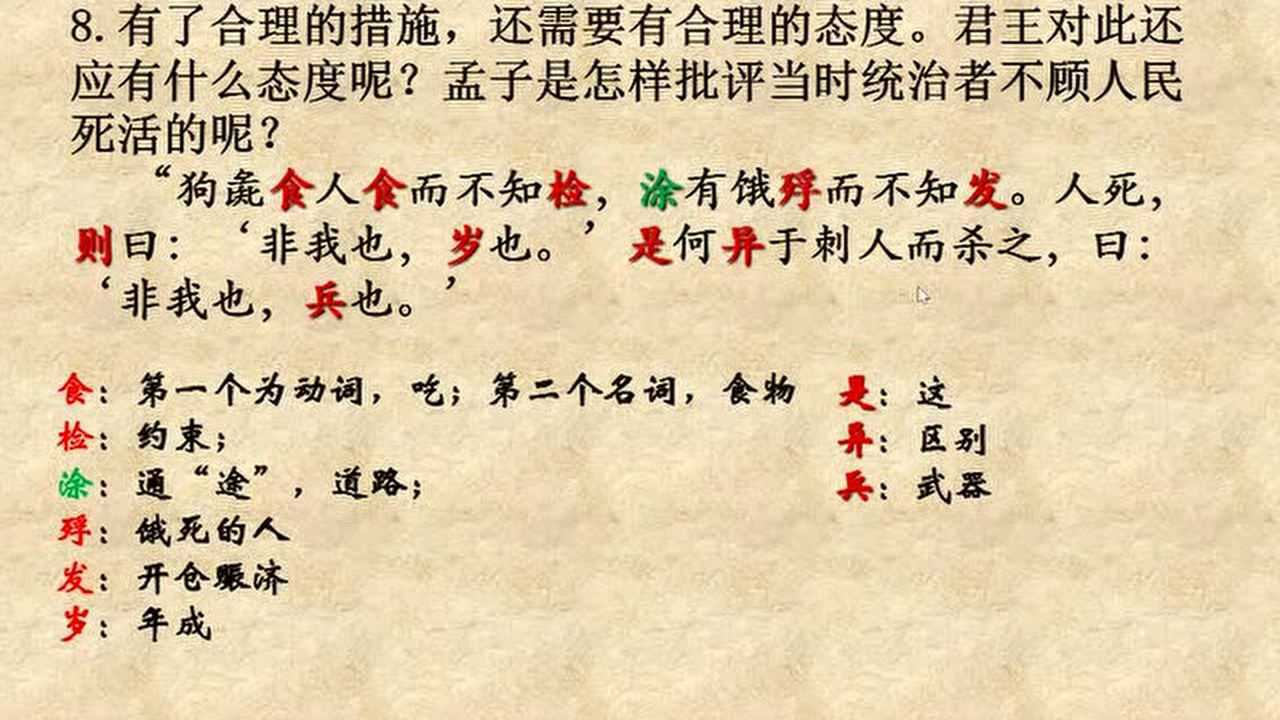 8. 有了合理的措施，还需要有合理的态度。君王对此还
应有什么态度呢？孟子是怎样批评当时统治者不顾人民
死活的呢？
“狗彘食人食而不知检，涂有饿殍而不知发。人死，
则曰：‘非我也，岁也。’是何异于刺人而杀之，曰：
‘非我也，兵也。’
食：第一个为动词，吃；第二个名词，食物
检：约束；
涂：通“途”，道路；
殍：饿死的人
发：开仓赈济
岁：年成
是：这
异：区别
兵：武器